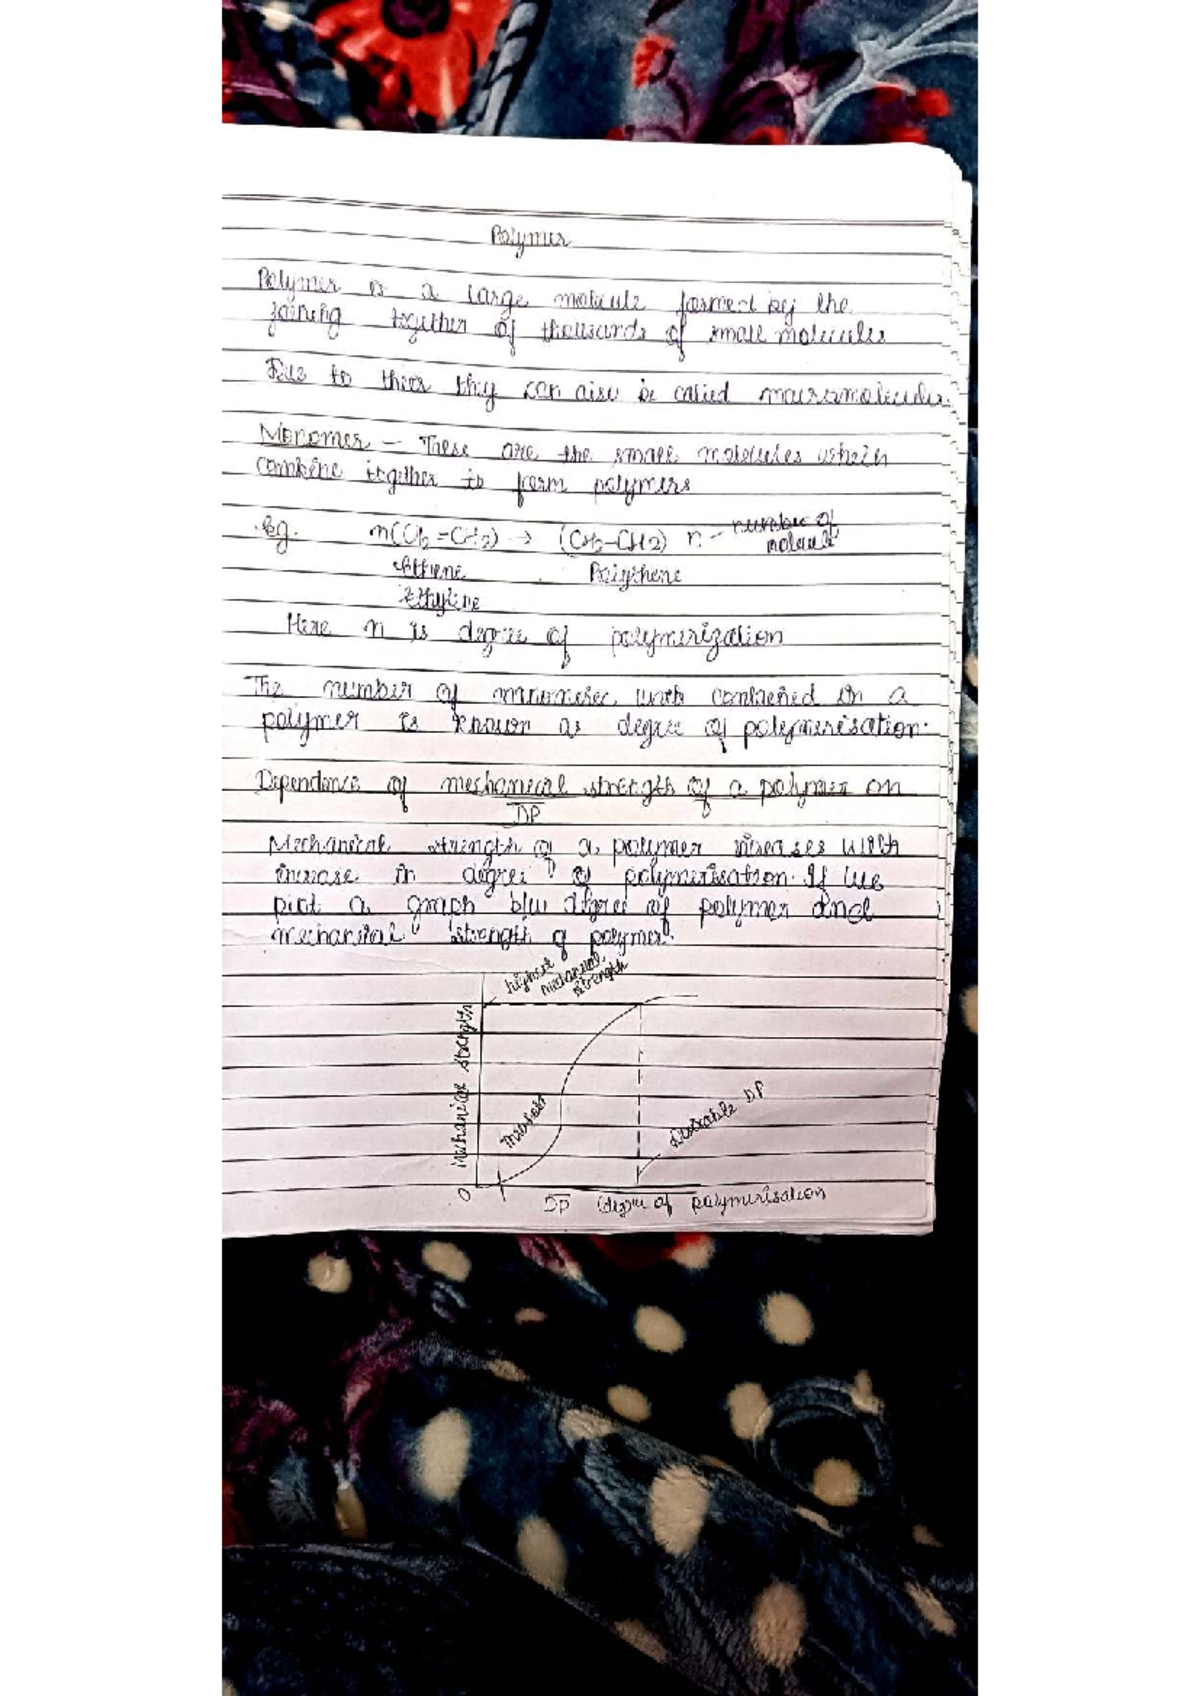 Polymer
Polymer is a large molicule formed by the
joining together of thousands of small molecules
Due to this they can also be called macromolecules.
Monomer - These are the small molecules which
combine together to form polymers
Eg. n(CH2=CH2) → (CH2-CH2) n - number of
molecule
Ethene Polythene
Ethyline
Here n is degree of polymerization
The number of monomer units contained in a
polymer is known as degree of polymerisation.
Dependence of mechanical strength of a polymer on
DP
Mechanical strength of a polymer increases with
increase in degree of polymerisation. If we
plot a graph b/w degree of polymer and
mechanical strength of polymer.
highest
mechanical
strength
Mechanical strength
Threshold
Desirable DP
O
DP (degree of polymerisation